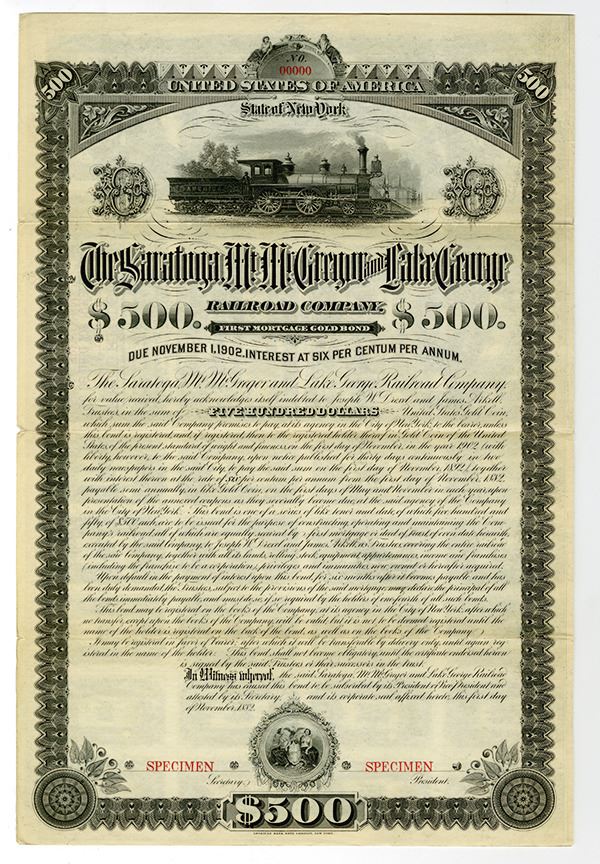 NO.
00000
500
500
UNITED STATES OF AMERICA
State of New York
The Saratoga, Mt. McGregor and Lake George
$500.
RAILROAD COMPANY,
$500.
FIRST MORTGAGE GOLD BOND
DUE NOVEMBER 1, 1902. INTEREST AT SIX PER CENTUM PER ANNUM.
The Saratoga, Mt. McGregor and Lake George Railroad Company,
for value received, hereby acknowledges itself indebted to Joseph W. Drexel and James Arkell,
Trustees, in the sum of FIVE HUNDRED DOLLARS United States Gold Coin,
which sum the said Company promises to pay, at its agency in the City of New York, to the bearer, unless
this bond is registered, and if registered, then to the registered holder thereof, in Gold Coin of the United
States, of the present standard of weight and fineness, on the first day of November, in the year 1902, with
liberty, however, to the said Company, upon notice published for thirty days continuously in two
daily newspapers in the said City, to pay the said sum on the first day of November, 1892, together
with interest thereon at the rate of six per centum per annum from the first day of November, 1882,
payable semi-annually, in like Gold Coin, on the first days of May and November in each year, upon
presentation of the annexed coupons as they severally become due, at the said agency of the Company
in the City of New York. This bond is one of a series of like tenor and date, of which five hundred and
fifty of $500 each, are to be issued for the purpose of constructing, operating and maintaining the Com-
pany's railroad, all of which are equally secured by a first mortgage or deed of trust, of even date herewith,
executed by the said Company, to Joseph W. Drexel and James Arkell, as Trustees, covering the entire railroad
of the said Company, together with all its lands, rolling stock, equipment, appurtenances, income and franchises
(including the franchise to be a corporation), privileges and immunities, now owned or hereafter acquired.
Upon default in the payment of interest upon this bond for six months after it becomes payable and has
been duly demanded, the Trustees, subject to the provisions of the said mortgage, may declare the principal of all
the bonds immediately payable, and must do so, if so required by the holders of one fourth of all such bonds.
This bond may be registered on the books of the Company, at its agency in the City of New York, after which
no transfer, except upon the books of the Company, will be valid, but it is not to be deemed registered until the
name of the holder is registered on the back of the bond, as well as on the books of the Company.
It may be registered in favor of bearer, after which it will be transferable by delivery only, until again reg-
istered in the name of the holder. This bond shall not become obligatory until the certificate endorsed hereon
is signed by the said Trustees or their successors in the trust.
In Witness whereof, the said Saratoga, Mt. McGregor and Lake George Railroad
Company has caused this bond to be subscribed by its President or Vice President and
attested by its Secretary, and its corporate seal affixed hereto, this first day
of November, 1882.
SPECIMEN
SPECIMEN
Secretary.
President.
$500
AMERICAN BANK NOTE COMPANY, NEW YORK.